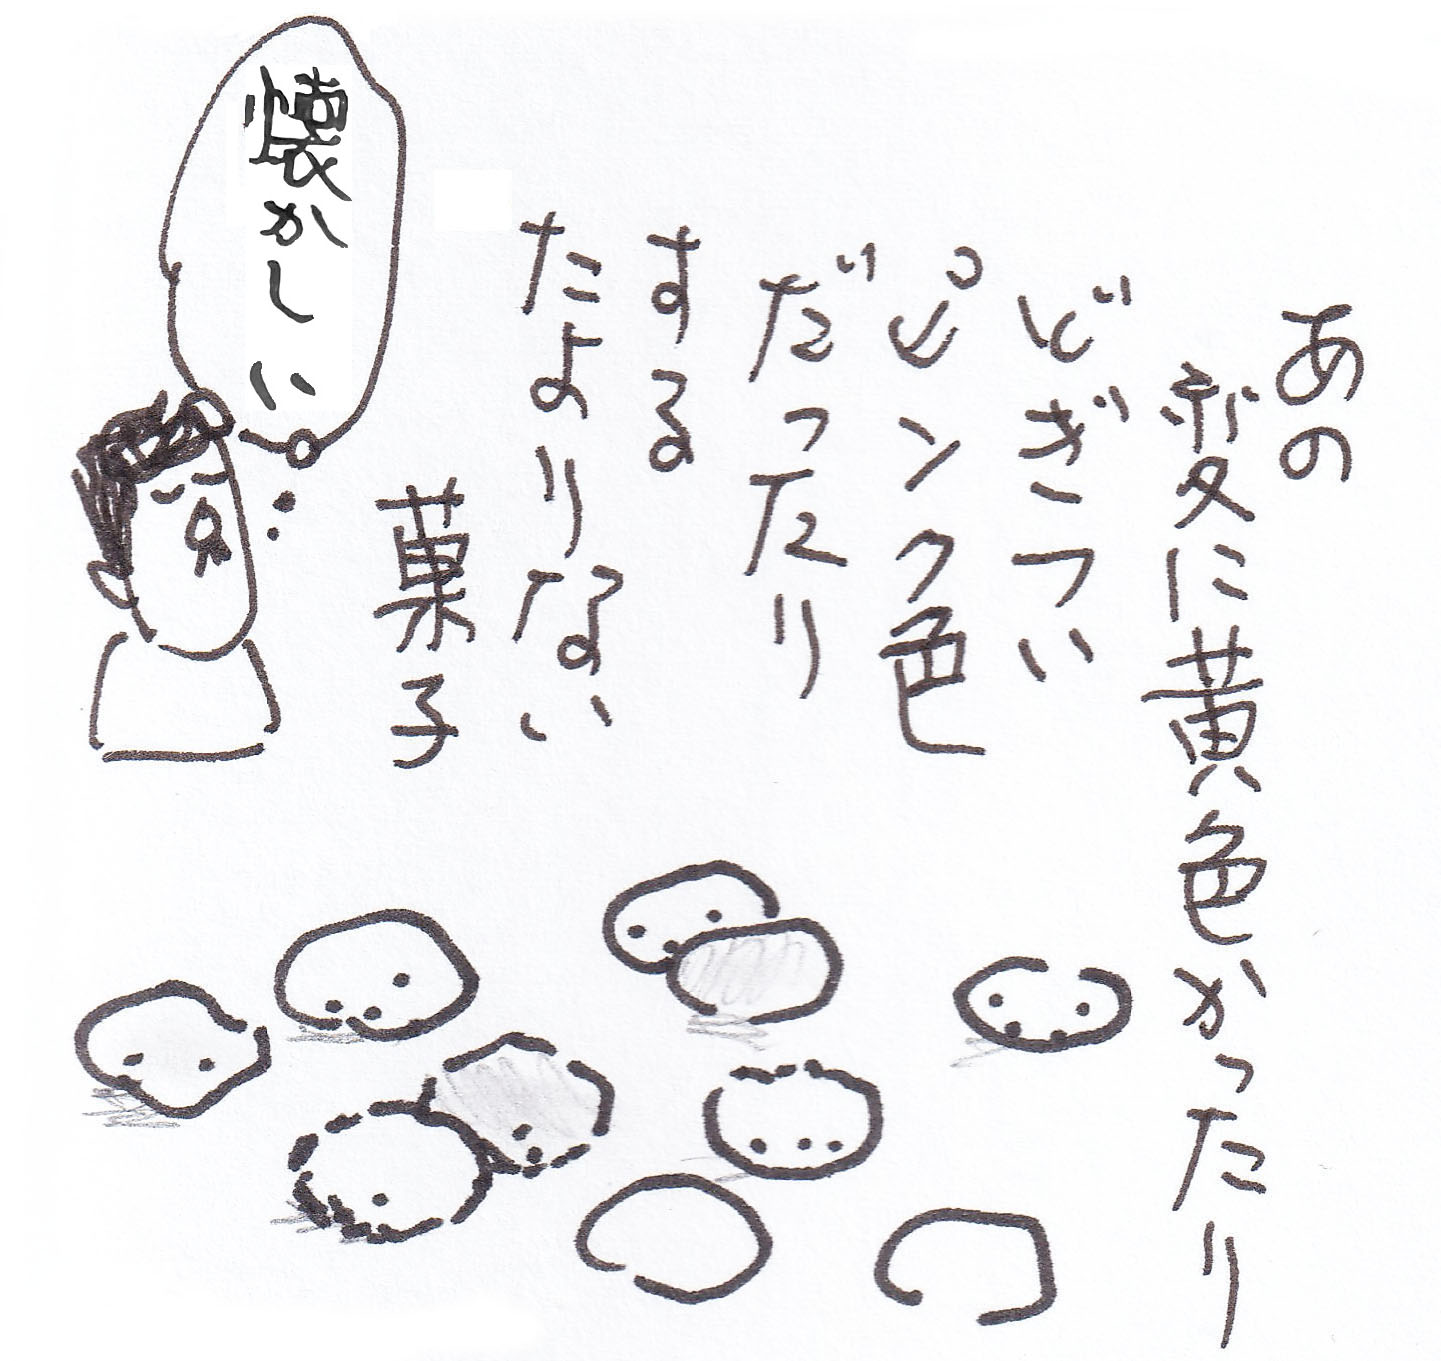 あの
変に黄色かったり
どぎつい
ピンク色
だったり
する
たよりない
菓子
懐かしい